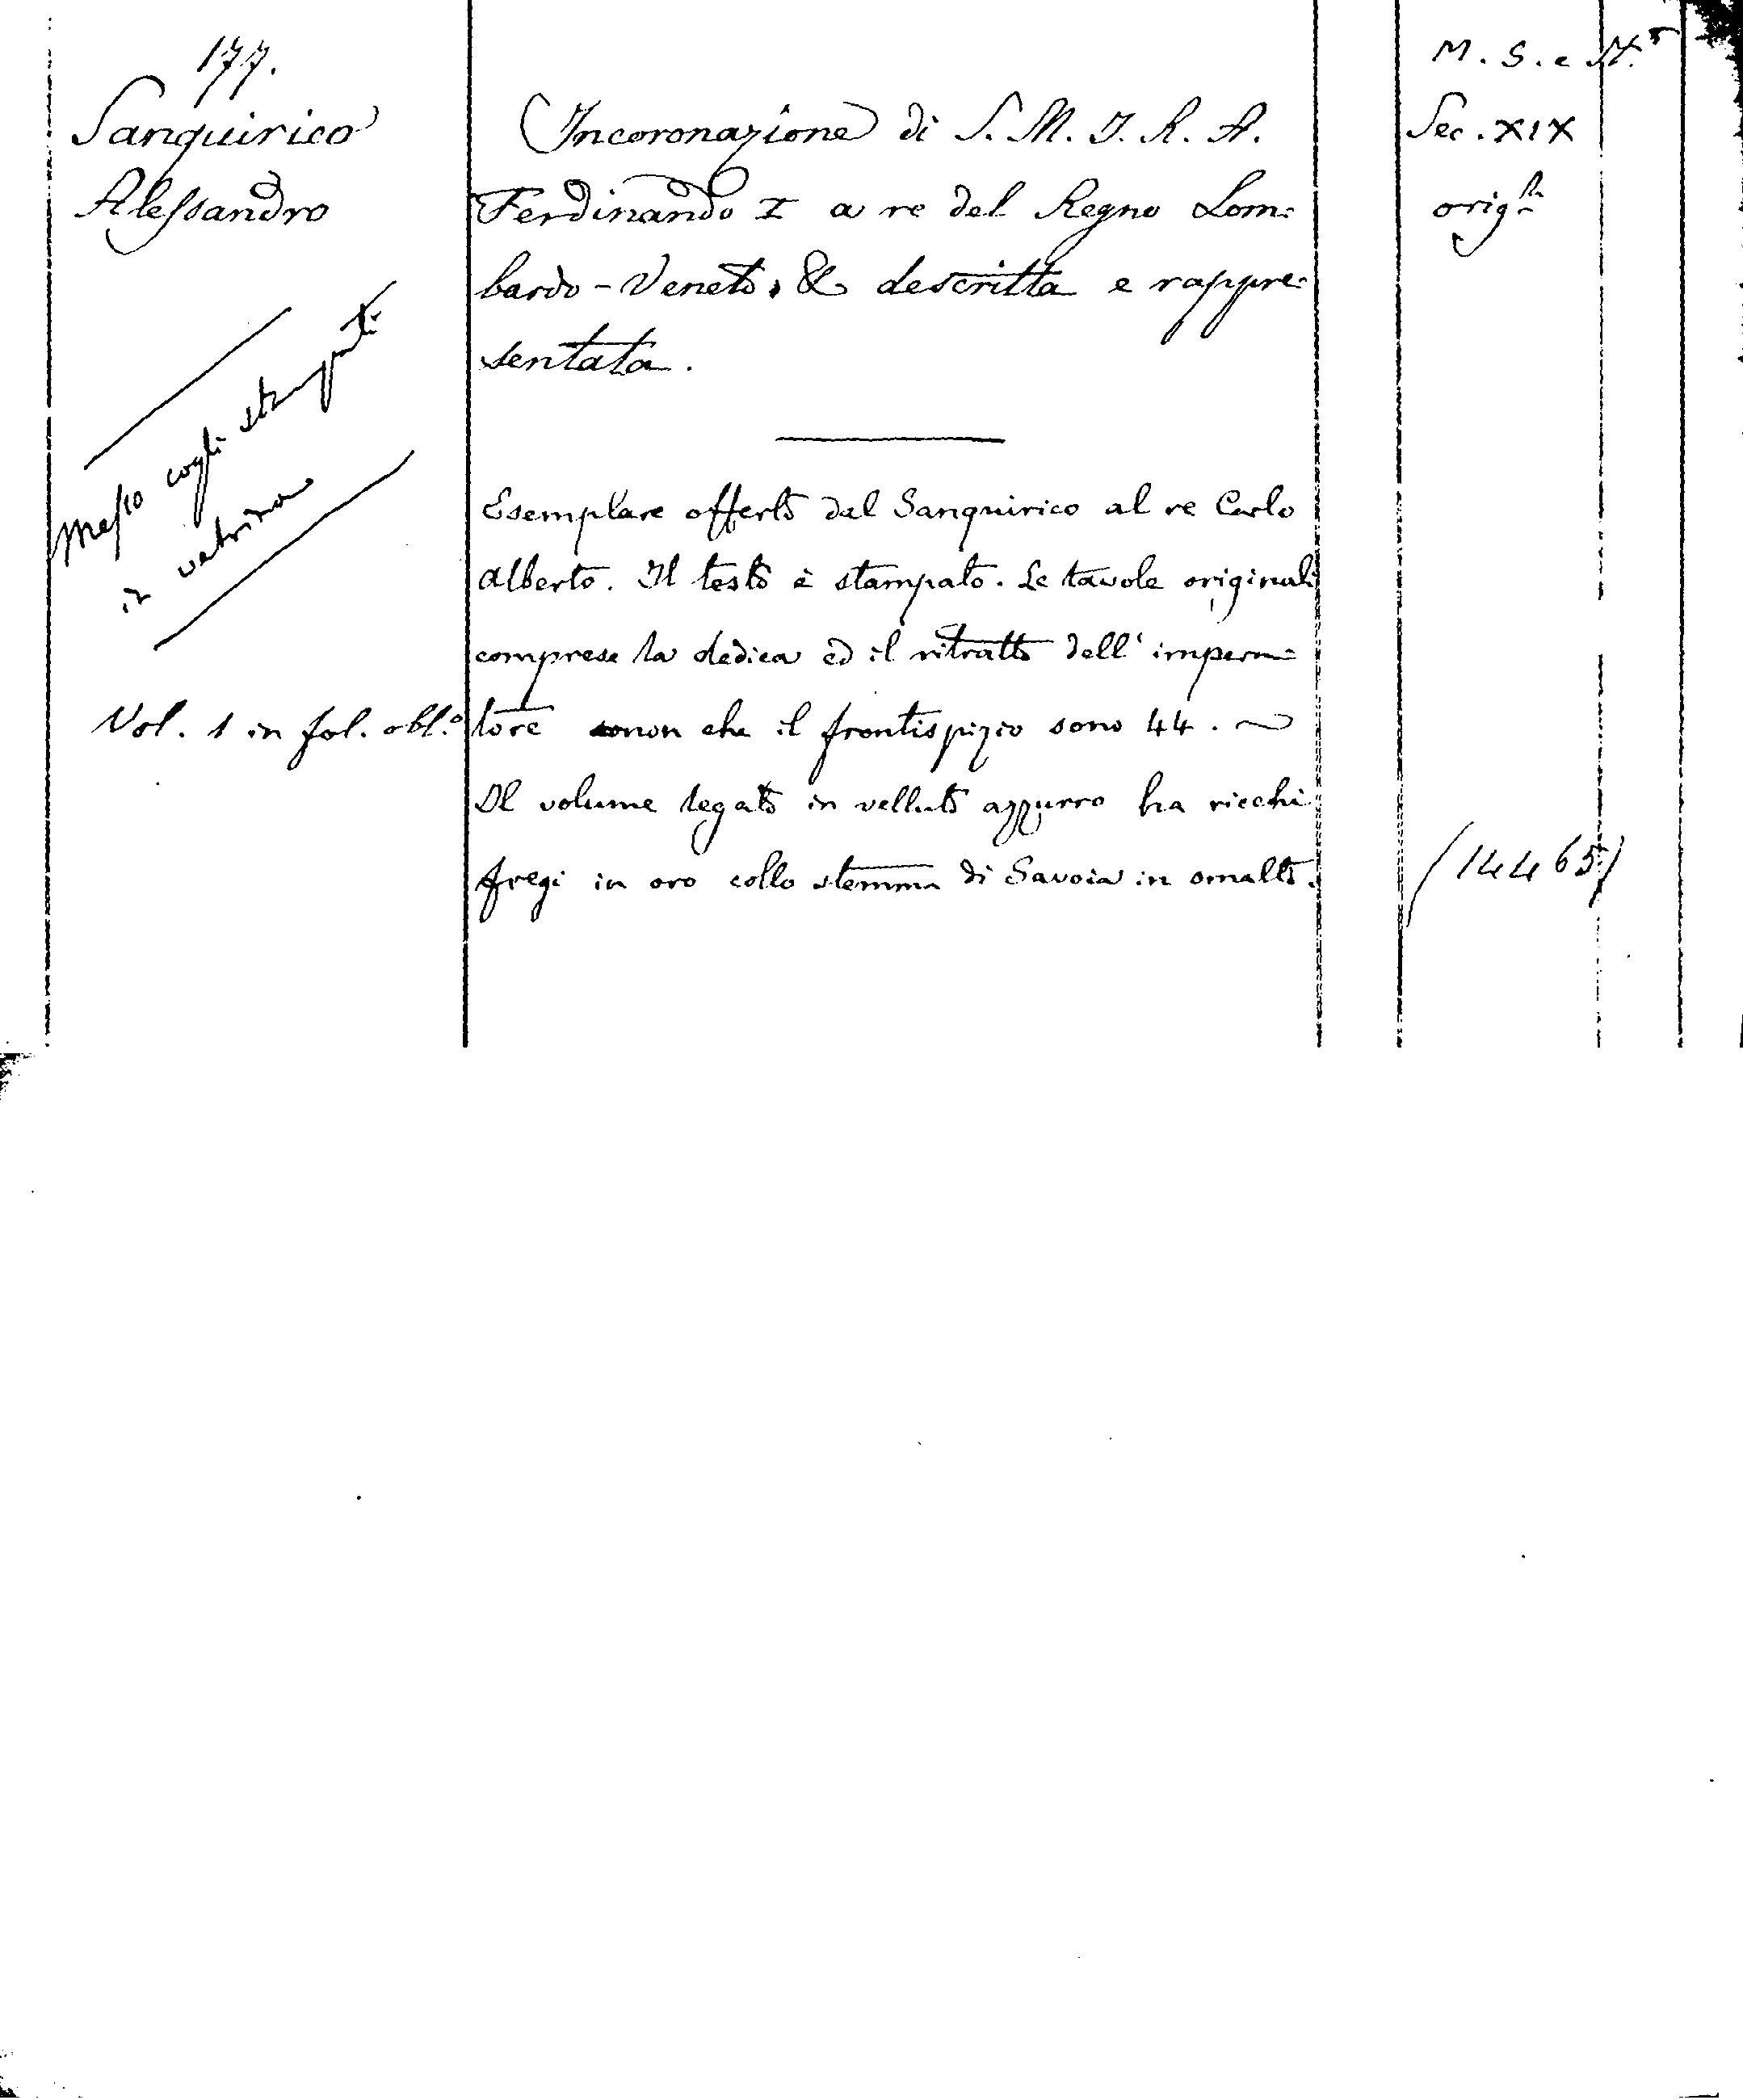 177.
Sanquirico
Alessandro
Messo cogli stampati
in vetrina
Vol. 1 in fol. obl.º
Incoronazione di S. M. I. R. A.
Ferdinando I a re del Regno Lom=
bardo-Veneto, & descritta e rappre=
sentata.
Esemplare offerto dal Sanquirico al re Carlo
Alberto. Il testo è stampato. Le tavole originali
comprese la dedica ed il ritratto dell' impera=
tore non che il frontispizio sono 44. ~
Il volume legato in velluto azzurro ha ricchi
fregi in oro collo stemma di Savoia in smalto.
M. S. e St.º
Sec. XIX
orig.le
(14465)